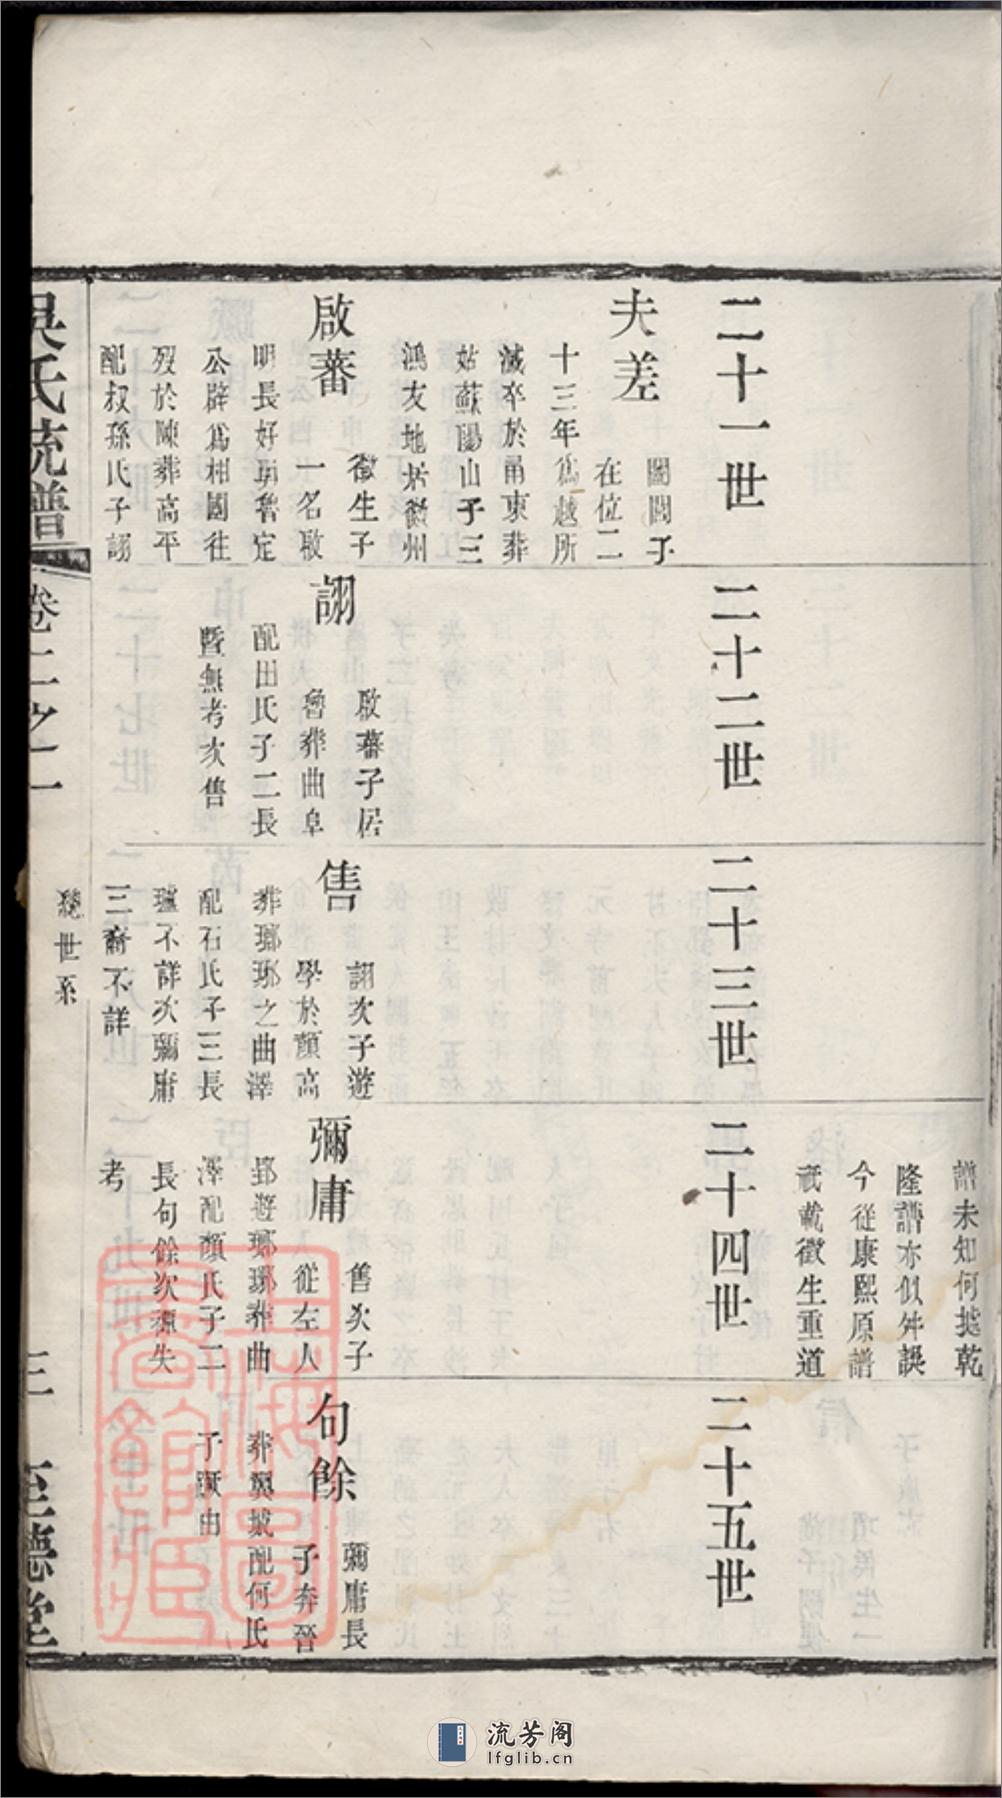 譜未知何據乾
隆譜亦似舛誤
今從康熙原譜
祇載徵生重道
二十一世
夫差
闔閭子
在位二
十三年爲越所
滅卒於甬東葬
姑蘇陽山子三
鴻友地居徽州
啟蕃
徵生子
一名啟
明長好
公辟爲相國往
歿於陳葬高平
配叔孫氏子詡
二十二世
詡
啟蕃子居
魯葬曲阜
配田氏子二長
暨無考次售
二十三世
售
詡次子遊
學於顏高
葬瑯琊之曲澤
配石氏子三長
瓘不詳次彌庸
三裔不詳
二十四世
彌庸
售次子
從左人
郢遊瑯琊葬曲
澤配顏氏子二
長句餘次
失
考
二十五世
句餘
彌庸長
子奔晉
葬翼城配何氏
子蹶由
吳氏統譜
卷二之一
總世系
三
至德堂
上海圖
書館藏
流芳阁
lfglib.cn